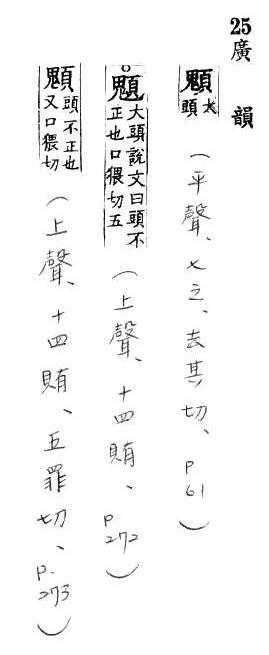 25廣韻
䫥大頭(平聲、七之、去其切、P61)
䫥大頭說文曰頭不正也口猥切五(上聲、十四賄、P272)
䫥頭不正也又口猥切(上聲、十四賄、五罪切、P.273)